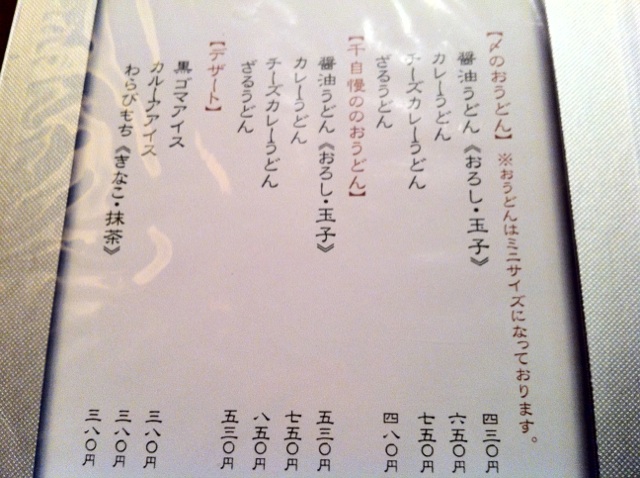 【〆のおうどん】 ※おうどんはミニサイズになっております。
醤油うどん《おろし・玉子》 四三〇円
カレーうどん 六五〇円
チーズカレーうどん 七五〇円
ざるうどん 四八〇円
【千自慢ののおうどん】
醤油うどん《おろし・玉子》 五三〇円
カレーうどん 七五〇円
チーズカレーうどん 八五〇円
ざるうどん 五三〇円
【デザート】
黒ゴマアイス 三八〇円
カルーアアイス 三八〇円
わらびもち《きなこ・抹茶》 三八〇円